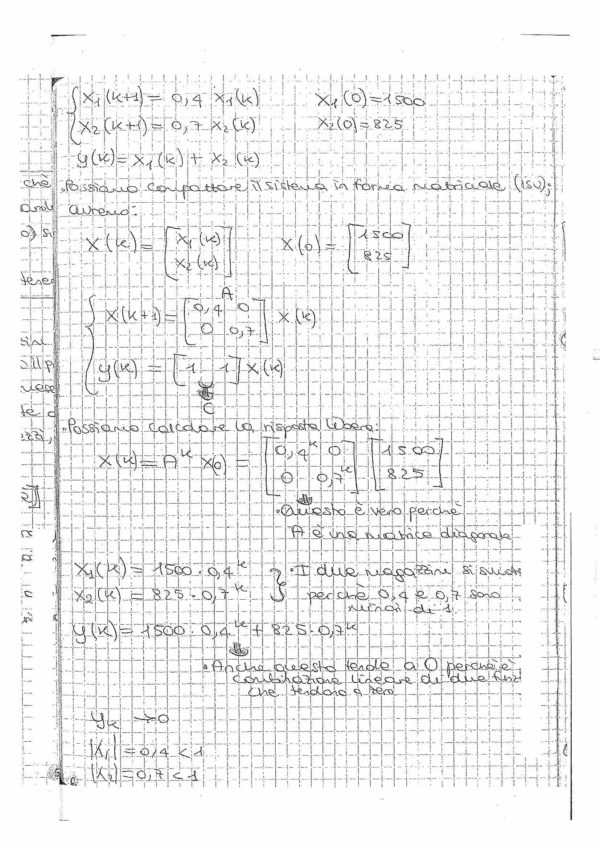 x1(k+1) = 0,4 x1(k)    x1(0)=1500
x2(k+1) = 0,7 x2(k)    x2(0)=825
y(k) = x1(k) + x2(k)
• Possiamo compattare il sistema in forma matriciale (ISU);
avremo:
X(k) = [x1(k) x2(k)]    X(0) = [1500 825]
A
X(k+1) = [0,4 0 0 0,7] X(k)
y(k) = [1 1] X(k)
C
• Possiamo calcolare la risposta libera:
X(k) = A^k X(0) = [0,4^k 0 0 0,7^k] [1500 825]
• Questo è vero perchè
A è una matrice diagonale
x1(k) = 1500 · 0,4^k    • I due magazzini si
x2(k) = 825 · 0,7^k    perchè 0,4 e 0,7 sono
minori di 1
y(k) = 1500 · 0,4^k + 825 · 0,7^k
• Anche questo tende a 0 perchè è
combinazione lineare di due
che tendono a zero
yk → 0
= 0,4 < 1
= 0,7 < 1